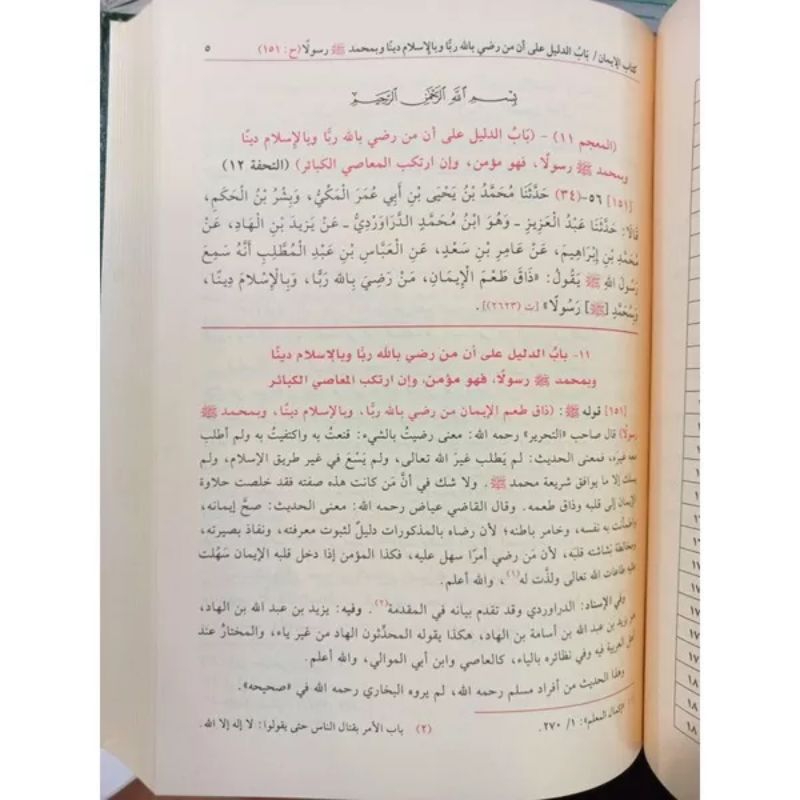 كتاب الإيمان/ بَابُ الدليل على أن من رضي بالله ربًّا وبالإسلام دينًا وبمحمد ﷺ رسولًا (ح: ١٥١) ٥
بِسْمِ اللَّهِ الرَّحْمَنِ الرَّحِيمِ
(المعجم ١١) - (بَابُ الدليل على أن من رضي بالله ربًّا وبالإسلام دينًا
وبمحمد ﷺ رسولًا، فهو مؤمن، وإن ارتكب المعاصي الكبائر) (التحفة ١٢)
[١٥١] ٥٦-(٣٤) حَدَّثَنَا مُحَمَّدُ بْنُ يَحْيَى بْنِ أَبِي عُمَرَ الْمَكِّيُّ، وَبِشْرُ بْنُ الْحَكَمِ،
قَالَا: حَدَّثَنَا عَبْدُ الْعَزِيزِ - وَهُوَ ابْنُ مُحَمَّدٍ الدَّرَاوَرْدِيُّ - عَنْ يَزِيدَ بْنِ الْهَادِ، عَنْ
مُحَمَّدِ بْنِ إِبْرَاهِيمَ، عَنْ عَامِرِ بْنِ سَعْدٍ، عَنِ الْعَبَّاسِ بْنِ عَبْدِ الْمُطَّلِبِ أَنَّهُ سَمِعَ
رَسُولَ اللهِ ﷺ يَقُولُ: «ذَاقَ طَعْمَ الْإِيمَانِ، مَنْ رَضِيَ بِاللهِ رَبًّا، وَبِالْإِسْلَامِ دِينًا،
وَبِمُحَمَّدٍ [ﷺ] رَسُولًا» [ت (٢٦٢٣)].
١١- باب الدليل على أن من رضي بالله ربًا وبالإسلام دينًا
وبمحمد ﷺ رسولًا، فهو مؤمن، وإن ارتكب المعاصي الكبائر
[١٥١] قوله ﷺ: (ذاق طعم الإيمان من رضي بالله ربًّا، وبالإسلام دينًا، وبمحمد ﷺ
رسولًا) قال صاحب «التحرير» رحمه الله: معنى رضيتُ بالشيء: قنعتُ به واكتفيتُ به ولم أطلب
معه غيرَه، فمعنى الحديث: لم يَطلب غيرَ الله تعالى، ولم يَسْعَ في غير طريق الإسلام، ولم
يسلك إلا ما يوافق شريعة محمد ﷺ. ولا شك في أنَّ مَن كانت هذه صفته فقد خلصت حلاوة
الإيمان إلى قلبه وذاق طعمه. وقال القاضي عياض رحمه الله: معنى الحديث: صحَّ إيمانه،
واطمأنت به نفسه، وخامر باطنه؛ لأن رضاه بالمذكورات دليلٌ لثبوت معرفته، ونفاذ بصيرته،
ومخالطة بَشاشته قلبَه، لأن مَن رضي أمرًا سهل عليه، فكذا المؤمن إذا دخل قلبه الإيمان سَهُلت
عليه طاعات الله تعالى ولذَّت له(١)، والله أعلم.
وفي الإسناد: الدراوردي وقد تقدم بيانه في المقدمة(٢). وفيه: يزيد بن عبد الله بن الهاد،
هو يزيد بن عبد الله بن أسامة بن الهاد، هكذا يقوله المحدِّثون الهاد من غير ياء، والمختارُ عند
أهل العربية فيه وفي نظائره بالياء، كالعاصي وابن أبي الموالي، والله أعلم.
وهذا الحديث من أفراد مسلم رحمه الله، لم يروه البخاري رحمه الله في «صحيحه».
«إكمال المعلم»: ١/ ٢٧٠. (٢) باب الأمر بقتال الناس حتى يقولوا: لا إله إلا الله.